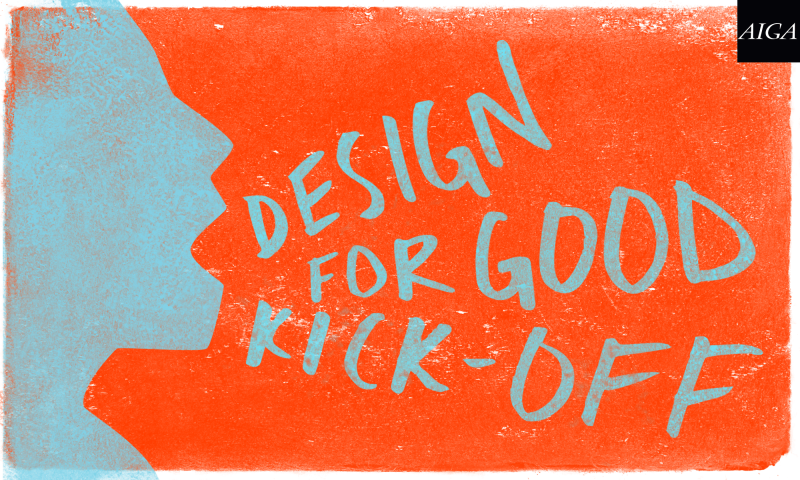 AIGA
DESIGN
FOR GOOD
KICK-OFF